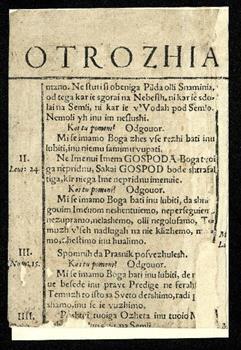 OTROZHIA
mano. Ne sturi si obeniga Pilda olli Snaminia,
od tega kar ie sgorai na Nebesih, ni kar ie sdo/
lai na Semli, ni kar ie v'Vodah pod Semlo.
Nemoli yh inu im neslushi.
Kai tu pomeni? Odgouor.
Mi se imamo Boga zhes vse rezhi bati inu
lubiti, inu niemu samimu vupati.
II. Ne Imenui Imena GOSPODA Boga tvoi
ga nepridnu, Sakai GOSPOD bode shtrafal
tiga, kir niega Ime nepridnu imenuie.
Kai tu pomeni? Odgouor.
Mi se imamo Boga bati inu lubiti, da
gouim Imenom neshentuiemo, neperseguiemo
nezupramo, nelashemo, olli negolufamo, Te
muzh v'seh nadlugah na nie klizhemo, m
mo, zhestimo inu hualimo.
III. Spomni da Prasnik posvezhuiesh.
Kai tu pomeni? Odgouor.
Mi se imamo Boga bati inu lubiti, de
ue besede inu prave Predige ne ferahl
Temuzh to isto sa Sveto dershimo, radi p
shamo, inu se ie vuzhimo.
IIII. tuoiga Ozheta inu tuoio M
na Semli